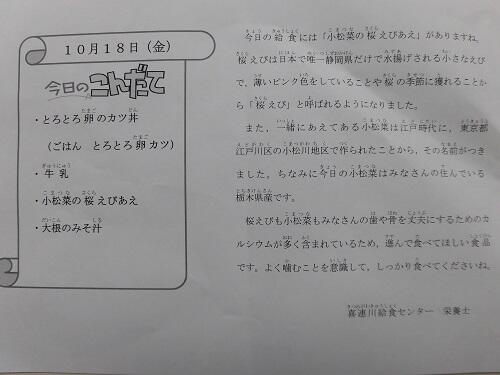 10月18日（金）
今日のこんだて
・とろとろ卵のカツ丼
（ごはん　とろとろ卵カツ）
・牛乳
・小松菜の桜えびあえ
・大根のみそ汁
今日の給食には「小松菜の桜えびあえ」がありますね。
桜えびは日本で唯一静岡県だけで水揚げされる小さなえび
で、薄いピンク色をしていることや桜の季節に獲れることか
ら「桜えび」と呼ばれるようになりました。
また、一緒にあえてある小松菜は江戸時代に、東京都
江戸川区の小松川地区で作られたことから、その名前がつき
ました。ちなみに今日の小松菜はみなさんの住んでいる
栃木県産です。
桜えびも小松菜もみなさんの歯や骨を丈夫にするためのカ
ルシウムが多く含まれているため、進んで食べてほしい食品
です。よく噛むことを意識して、しっかり食べてくださいね。
喜連川給食センター　栄養士